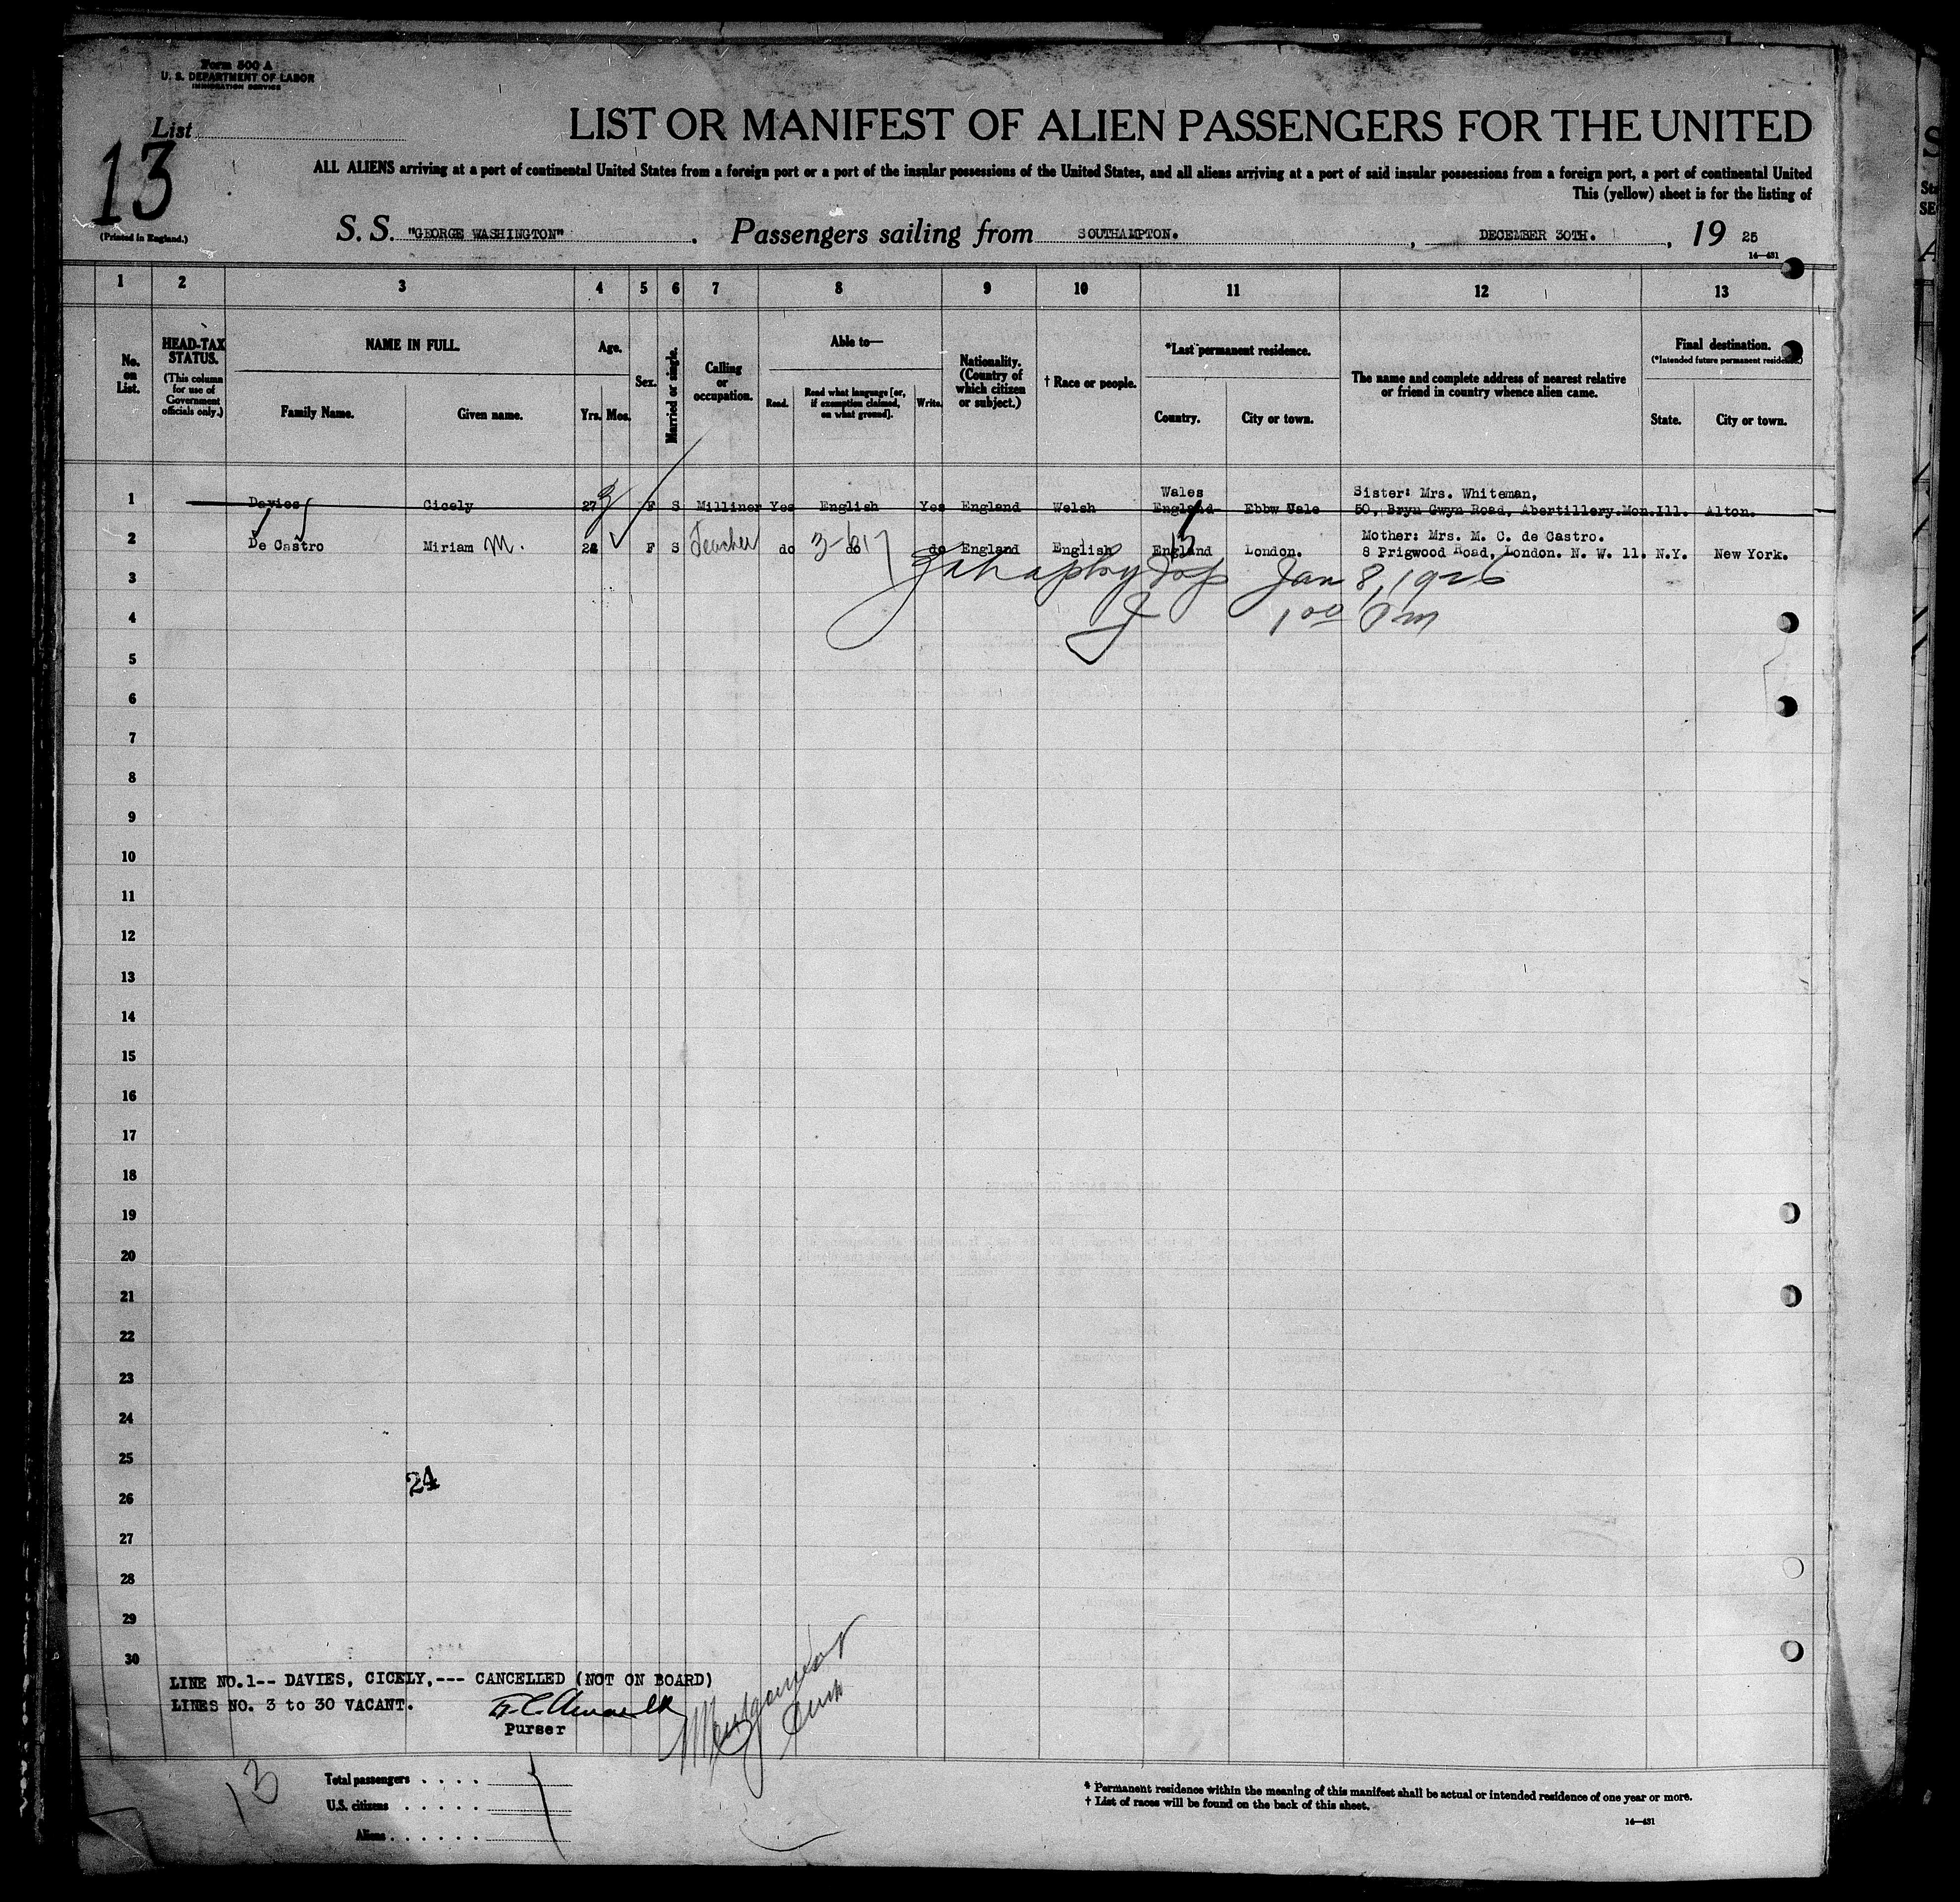 Form 500 A
U. S. DEPARTMENT OF LABOR
IMMIGRATION SERVICE
List
13
(Printed in England.)
LIST OR MANIFEST OF ALIEN PASSENGERS FOR THE UNITED
ALL ALIENS arriving at a port of continental United States from a foreign port or a port of the insular possessions of the United States, and all aliens arriving at a port of said insular possessions from a foreign port, a port of continental United
This (yellow) sheet is for the listing of
S. S. "GEORGE WASHINGTON" . Passengers sailing from SOUTHAMPTON. , DECEMBER 30TH. , 19 25
14—431
1 2 3 4 5 6 7 8 9 10 11 12 13
No. on List.
HEAD-TAX STATUS.
(This column for use of Government officials only.)
NAME IN FULL.
Family Name. Given name.
Age.
Yrs. Mos.
Sex.
Married or single.
Calling or occupation.
Able to—
Read. Read what language [or, if exemption claimed, on what ground]. Write.
Nationality. (Country of which citizen or subject.)
† Race or people.
*Last permanent residence.
Country. City or town.
The name and complete address of nearest relative or friend in country whence alien came.
Final destination.
(*Intended future permanent residence.)
State. City or town.
Wales Sister: Mrs. Whiteman,
1 Davies Cicely 27 F S Milliner Yes English Yes England Welsh England Ebbw Vale 50, Bryn Gwyn Road, Abertillery.Mon. Ill. Alton.
Mother: Mrs. M. C. de Castro.
2 De Castro Miriam M. 22 F S Teacher do do do England English England London. 8 Prigwood Road, London. N. W. 11. N.Y. New York.
3 Jan 8, 1926
4 1 00 Pm
5
6
7
8
9
10
11
12
13
14
15
16
17
18
19
20
21
22
23
24
25
24
26
27
28
29
30
LINE NO.1-- DAVIES, CICELY,--- CANCELLED (NOT ON BOARD)
LINES NO. 3 to 30 VACANT.
Purser
13
Total passengers . . . .
U.S. citizens . . . . .
Aliens . . . . . .
* Permanent residence within the meaning of this manifest shall be actual or intended residence of one year or more.
† List of races will be found on the back of this sheet.
14—431